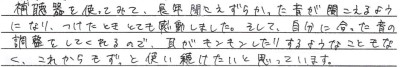 補聴器を使ってみて、長年聞こえずらかった音が聞こえるよう
になり、つけたときとても感動しました。そして、自分に合った音の
調整をしてくれるので、耳がキンキンしたりするようなこともな
く、これからもずっと使い続けたいと思っています。